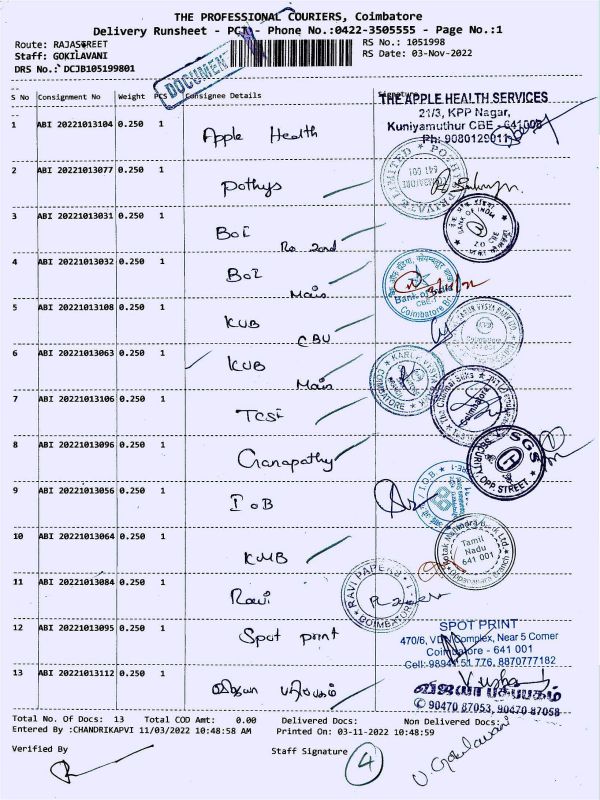 THE PROFESSIONAL COURIERS, Coimbatore
Delivery Runsheet - PCJ - Phone No.:0422-3505555 - Page No.:1
Route: RAJASTREET
RS No.: 1051998
Staff: GOKILAVANI
RS Date: 03-Nov-2022
DRS No.: DCJB105199801
DOCUMEN
S No Consignment No Weight PCS Consignee Details Signature
1 ABI 20221013104 0.250 1 Apple Health
THE APPLE HEALTH SERVICES
21/3, KPP Nagar,
Kuniyamuthur CBE - 641008
Ph: 9080129011
2 ABI 20221013077 0.250 1 Pothys
3 ABI 20221013031 0.250 1 BOI
BANK OF INDIA
4 ABI 20221013032 0.250 1 BOI
Main
5 ABI 20221013108 0.250 1 KVB
CBU
6 ABI 20221013063 0.250 1 KVB
Main
COIMBATORE
7 ABI 20221013106 0.250 1 TCSF
The Chennai Silks
Coimbatore
8 ABI 20221013096 0.250 1 Ganapathy
SGS
SECURITY OPP STREET
9 ABI 20221013056 0.250 1 IOB
10 ABI 20221013064 0.250 1 KMB
Kotak Mahindra Bank Ltd.
Tamil
Nadu
641 001
11 ABI 20221013084 0.250 1 Ravi
RAVI PAPERS
COIMBATORE
12 ABI 20221013095 0.250 1 Spot print
SPOT PRINT
470/6, VDN Complex, Near 5 Corner
Coimbatore - 641 001
Cell: 98941 51 776, 8870777182
13 ABI 20221013112 0.250 1 விஜயா பதிப்பகம்
விஜயா பதிப்பகம்
✆ 90470 87053, 90470 87058
Total No. Of Docs: 13 Total COD Amt: 0.00 Delivered Docs: Non Delivered Docs:
Entered By :CHANDRIKAPVI 11/03/2022 10:48:58 AM Printed On: 03-11-2022 10:48:59
Verified By
Staff Signature
4
V. Gokilavani